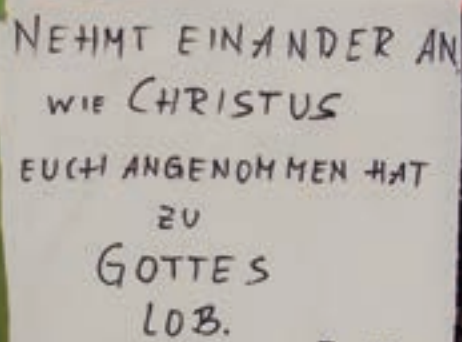 NEHMT EINANDER AN
WIE CHRISTUS
EUCH ANGENOMMEN HAT
ZU
GOTTES
LOB.